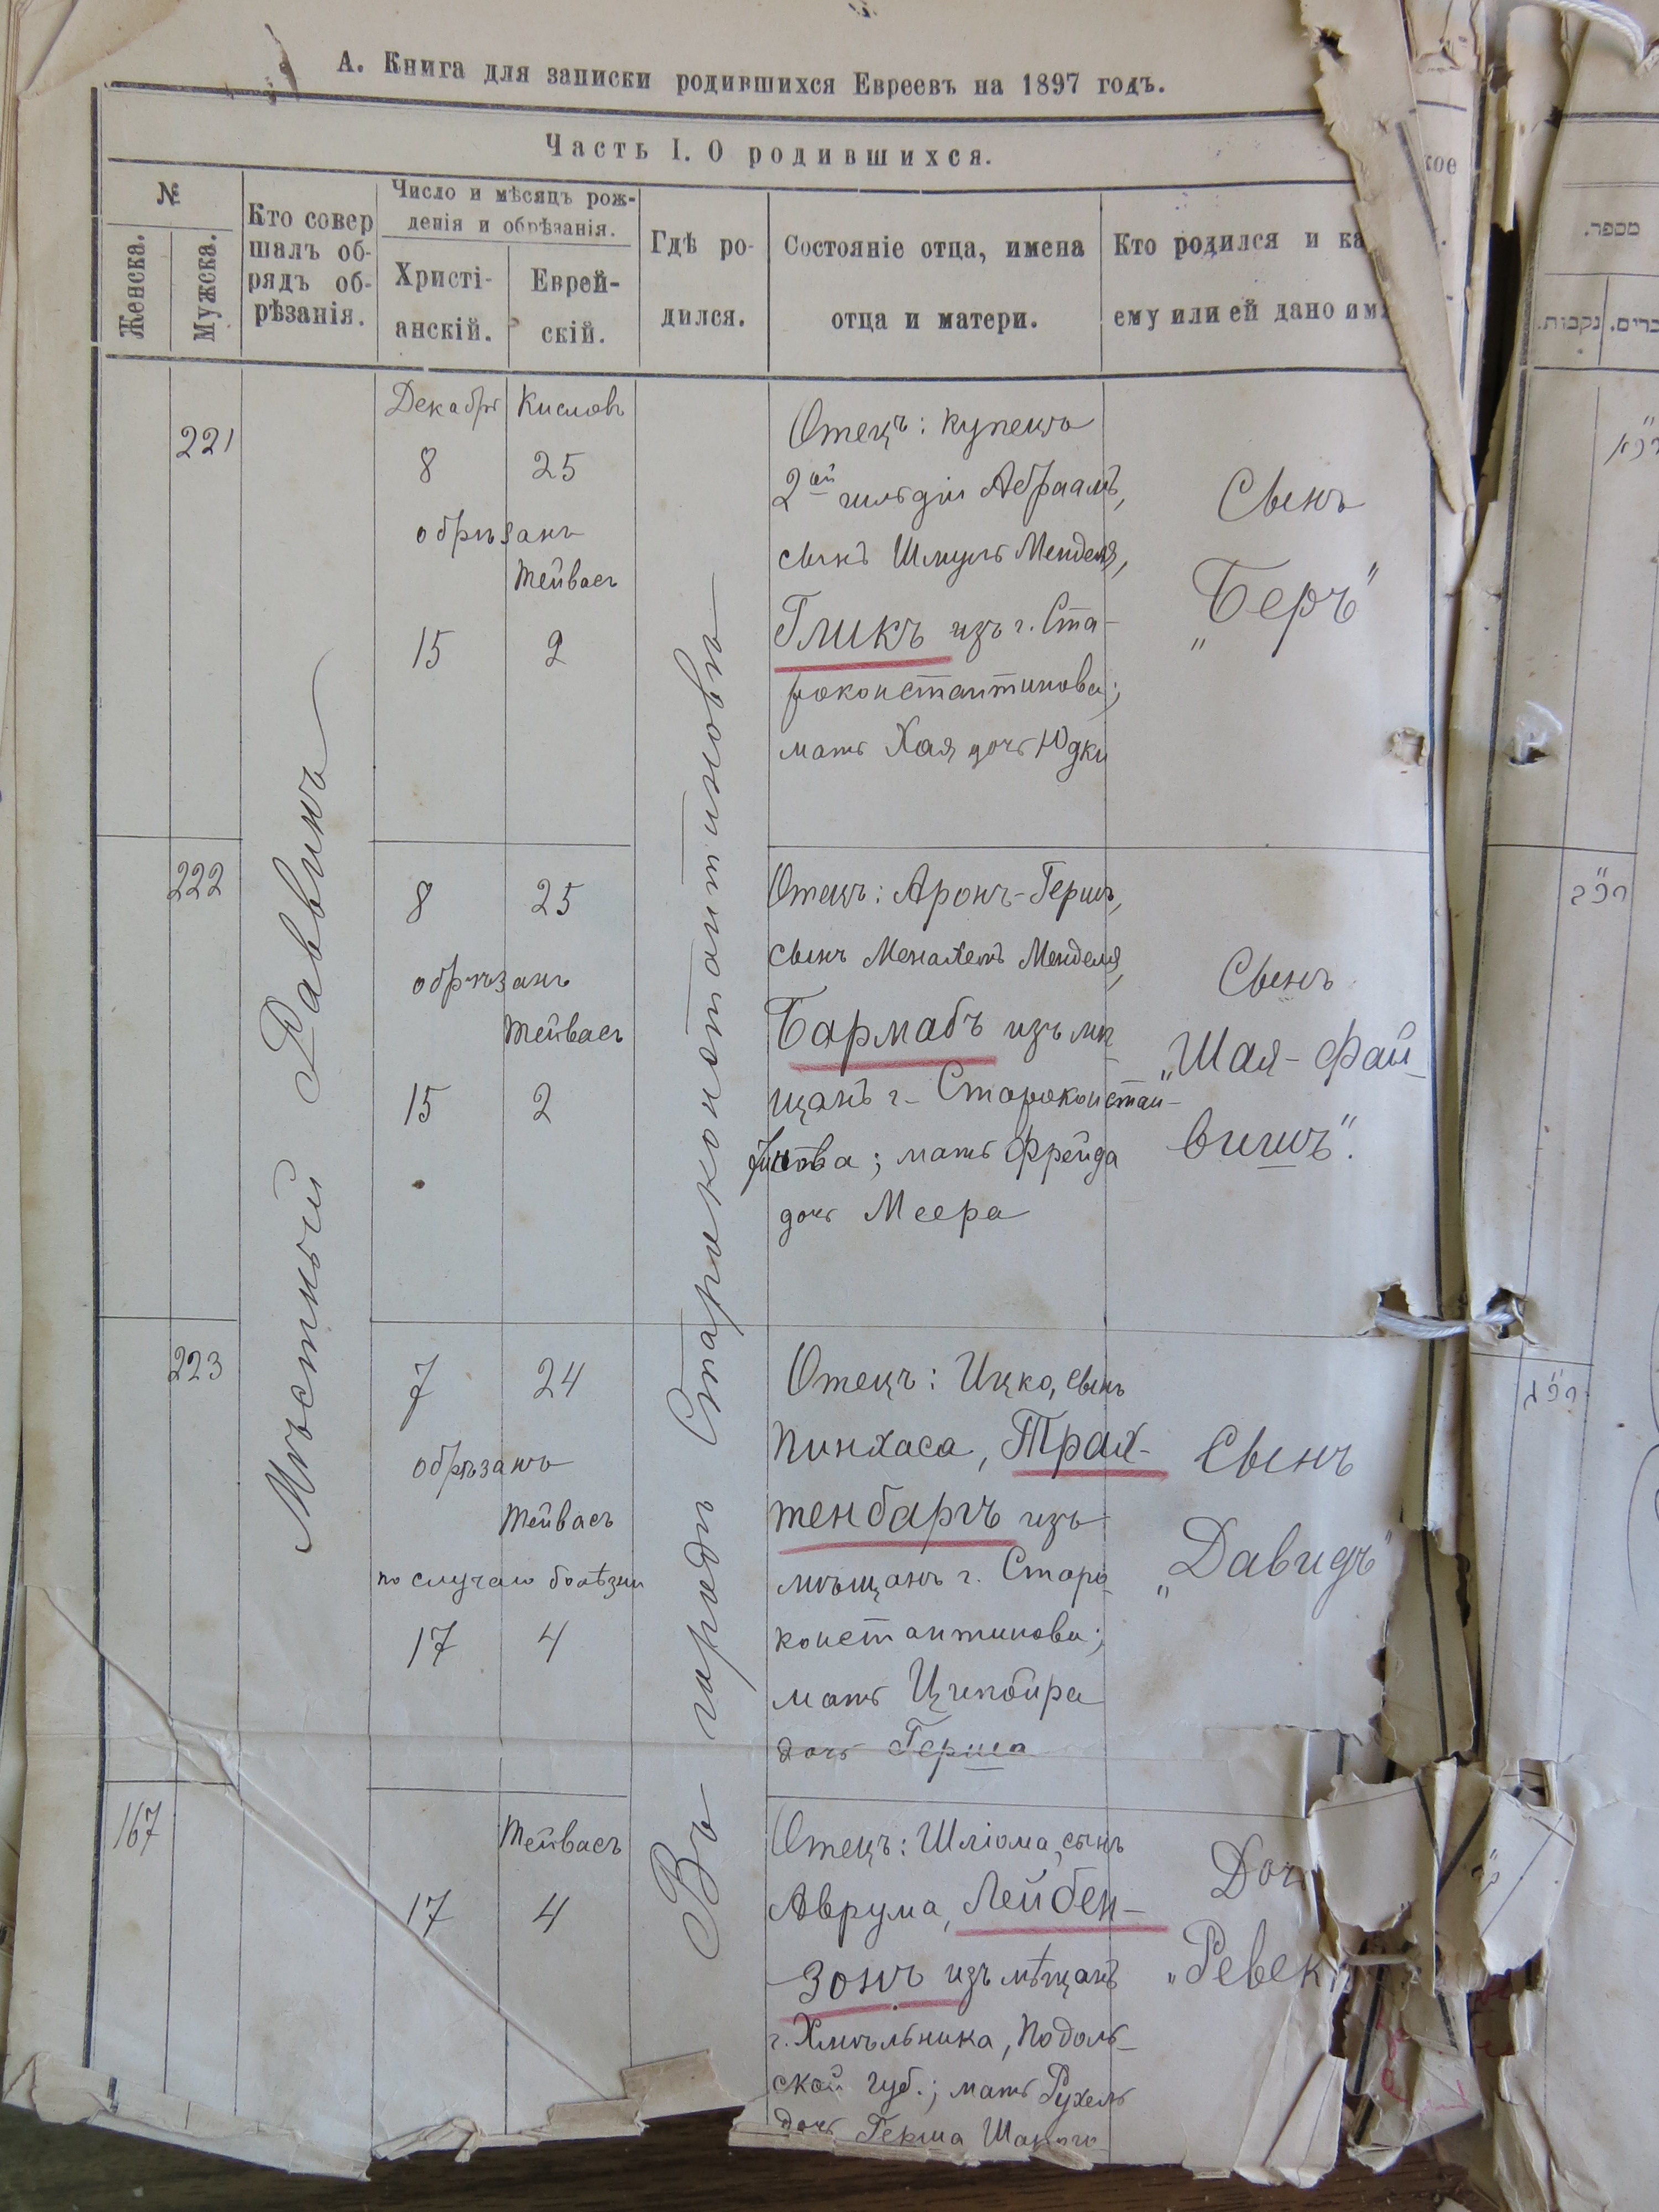 А. Книга для записки родившихся Евреевъ на 1897 годъ.
Часть I. О родившихся.
№
Женска.
Мужска.
Кто совер
шалъ об-
рядъ об-
рѣзанія.
Число и мѣсяцъ рож-
денія и обрѣзанія.
Христі-
анскій.
Еврей-
скій.
Гдѣ ро-
дился.
Состояніе отца, имена
отца и матери.
Кто родился и ка
ему или ей дано им
Мѣстный Раввинъ
Въ городѣ Староконстантиновѣ
221
Декабрь Кислевъ
8 25
обрѣзанъ
Тейвесъ
15 2
Отецъ: купецъ
2ой гильдіи Абраамъ,
сынъ Шмуль Менделя,
Гликъ изъ г. Ста-
роконстантинова;
мать Хая дочь Юдки
Сынъ
„Беръ"
222
8 25
обрѣзанъ
Тейвесъ
15 2
Отецъ: Аронъ-Гершъ,
сынъ Менахемъ Менделя,
Бармабъ изъ мѣ-
щанъ г. Староконстан-
тинова; мать Фрейда
дочь Меера
Сынъ
„Шая-Фай-
вишъ".
223
7 24
обрѣзанъ
Тейвесъ
по случаю болѣзни
17 4
Отецъ: Ицко, сынъ
Пинхаса, Трах-
тенбаргъ изъ
мѣщанъ г. Старо-
константинова;
мать Ципойра
дочь Герша
Сынъ
„Давидъ"
167
Тейвесъ
17 4
Отецъ: Шліома, сынъ
Аврума, Лейбен-
зонъ изъ мѣщанъ
г. Хмѣльника, Подоль-
ской губ.; мать Рухель
дочь Герша
Доч
„Ревек
кое
מספר.
נקבות.
רכ"א
רכ"ב
רכ"ג